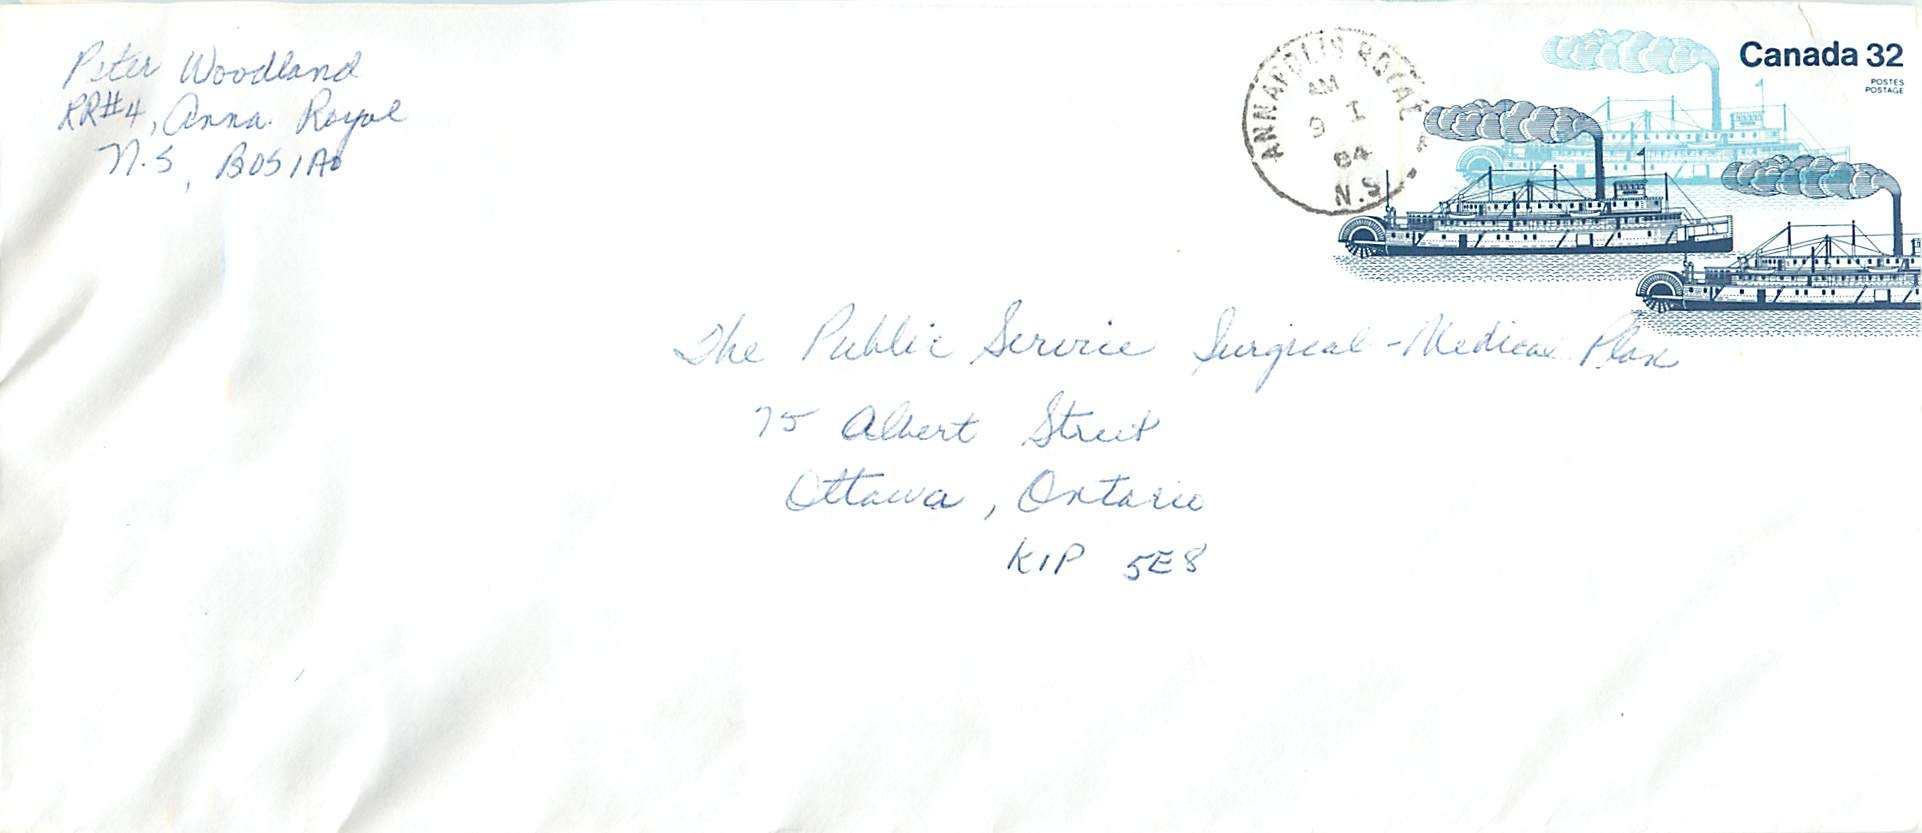 Peter Woodland
RR#4, Anna. Royal
N.S, B0S1A0
ANNAPOLIS ROYAL
AM
9 I
84
N.S.
Canada 32
POSTES
POSTAGE
The Public Service Surgical-Medical Plan
75 Albert Street
Ottawa, Ontario
K1P 5E8